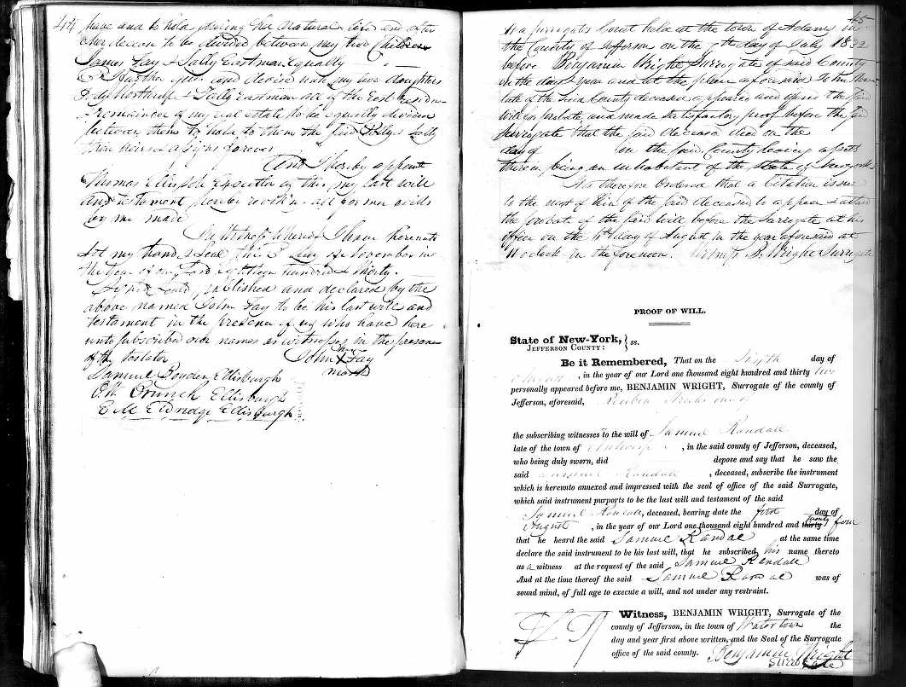 44
have and to hold during her natural life and after
her decease to be divided between my two Children
James Fay & Sally Eastman equally
I Further give and devise unto my two daughters
& Sally Eastman all of the rest residue
& remainder of my real estate to be equally divided
between them to hold to them the said & Sally
their heirs & assigns forever
And I hereby appoint
Thomas Ellis Executor of this my last will
and testament hereby revoking all former wills
by me made
In Witness whereof I have hereunto
Set my hand & seal this 3 day of November in
the year of our Lord eighteen hundred & thirty.
Signed Sealed published and declared by the
above named John Fay to be his last will and
testament in the presence of us who have here
unto subscribed our names as witnesses in the presence
of the testator
John X Fay
mark
Samuel Boyden Ellisburgh
Ellisburgh
Eldridge Ellisburgh
45
At a Surrogates Court held at the town of Adams in
the County of Jefferson on the day of July 1832
before Benjamin Wright Surrogate of said County
on the day & year and at the place aforesaid
late of the said County deceased appeared and the said
will and made satisfactory proof before the said
Surrogate that the said deceased died on the
day of in the said County leaving assets
therein being an inhabitant of the State of New York
It is therefore ordered that a Citation issue
to the next of kin of the said deceased to appear & attend
the probate of the said will before the Surrogate at his
office on the day of August in the year aforesaid at
o'clock in the forenoon. B. Wright Surrogate
PROOF OF WILL.
State of New-York, } ss.
JEFFERSON COUNTY:
Be it Remembered, That on the Sixth day of
, in the year of our Lord one thousand eight hundred and thirty two
personally appeared before me, BENJAMIN WRIGHT, Surrogate of the county of
Jefferson, aforesaid, Reuben one of
the subscribing witnesses to the will of Samuel Randall
late of the town of , in the said county of Jefferson, deceased,
who being duly sworn, did depose and say that he saw the
said Samuel Randall , deceased, subscribe the instrument
which is hereunto annexed and impressed with the seal of office of the said Surrogate,
which said instrument purports to be the last will and testament of the said
Samuel Randall, deceased, bearing date the first day of
August , in the year of our Lord one thousand eight hundred and thirty twenty four
that he heard the said Samuel Randal at the same time
declare the said instrument to be his last will, that he subscribed his name thereto
as a witness at the request of the said Samuel Randall
And at the time thereof the said Samuel Randal was of
sound mind, of full age to execute a will, and not under any restraint.
Witness, BENJAMIN WRIGHT, Surrogate of the
county of Jefferson, in the town of Watertown the
day and year first above written, and the Seal of the Surrogate
office of the said county. Benjamin Wright
Surrogate